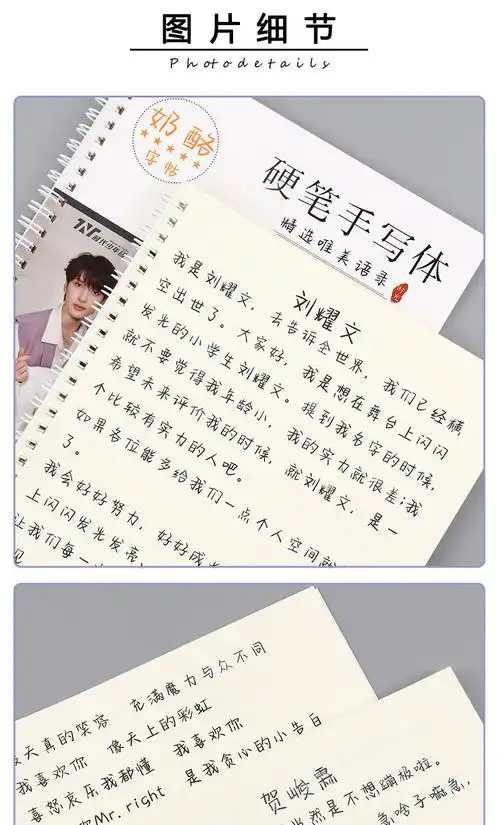 图片细节
Photodetails
奶酪
字帖
硬笔手写体
精选唯美语录
刘耀文
我是刘耀文，去告诉全世界，我们已经横
空出世了。大家好，我是想在舞台上闪闪
发光的小学生刘耀文。提到我名字的时候，
就不要觉得我年龄小，我的实力就很差；我
希望未来评价我的时候，就刘耀文，是一
个比较有实力的人吧。
如果各位能多给我们一点个人空间就
了。
我会好好努力，好好成
上闪闪发光发亮
让我们每一
见
天真的笑容 充满魔力与众不同
我喜欢你 像天上的彩虹
喜怒哀乐我都懂 我喜欢你
Mr. right 是我贪心的小告白
贺峻霖
当然是不想蹦极啦。
急啥子嘛急，